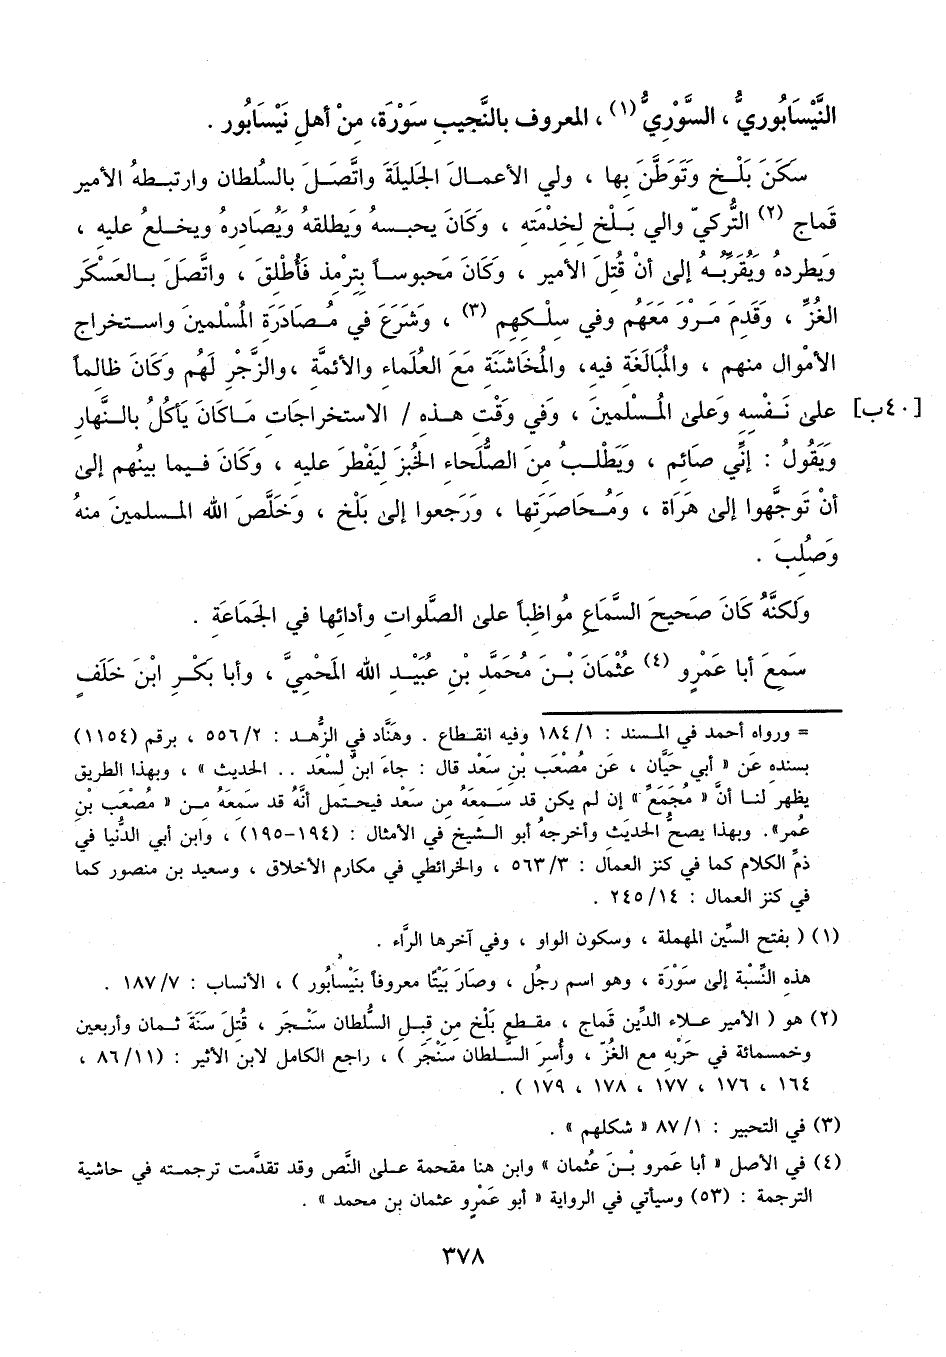 النَّيْسَابُوريُّ ، السَّوْرِيُّ (١) ، المعروف بالنَّجيبِ سَوْرَة، مِنْ أهلِ نَيْسَابُور .
سَكَنَ بَلْخ وَتَوَطَّنَ بها ، ولي الأعمالَ الجَليلَةَ واتَّصَلَ بالسُلطان وارتبطهُ الأمير
قماج (٢) التُّركيّ والي بَلْخ لخِدْمَته ، وَكَانَ يحبسهُ وَيَطلقهُ وَيُصَادره ويخلعُ عليه ،
وَيطردهُ وَيُقَرّبُهُ إلى أنْ قُتِلَ الأمير ، وَكَانَ مَحبوساً بِتِرْمذ فَأُطْلِقَ ، واتَّصَلَ بالعَسْكَر
الغُزِّ ، وَقَدِمَ مَرْوَ مَعَهُم وفي سِلْكِهِم (٣) ، وَشَرَعَ في مُصَادَرَةِ المُسْلمينَ واستخراج
الأمْوالِ منهم ، والمُبَالَغَة فيهِ، والمُخَاشَنَة مَعَ العُلَماء والأئمَّة ،والزَّجْر لَهُم وَكَانَ ظالماً
[٤٠ب] على نَفْسِهِ وَعَلى المُسْلمينَ ، وَفي وَقْتِ هذه / الاستخراجَات مَاكَانَ يَأكُلُ بالنَّهار
وَيَقولُ : إنِّي صَائم ، وَيَطْلبُ مِنَ الصُّلَحاء الخُبزَ ليَفْطرَ عليه ، وَكَانَ فيما بينهُم إلى
أنْ تَوَجَّهوا إلى هَرَاة ، وَمُحَاصَرَتها ، وَرَجَعوا إلى بَلْخ ، وَخَلَّصَ الله المسلمينَ منهُ
وَصُلِبَ .
وَلكنَّهُ كَانَ صَحيحَ السَّمَاعِ مُواظِباً على الصَّلوات وأدائها في الجَمَاعَةِ .
سَمِعَ أبا عَمْرٍو (٤) عُثْمَانَ بْنَ مُحَمَّد بْنِ عُبَيْد الله المَحْمِيَّ ، وأبا بَكْر ابْنَ خَلَفٍ
= ورواه أحمد في المسند : ١/ ١٨٤ وفيه انقطاع . وهَنَّاد في الزُّهد : ٢/ ٥٥٦ ، برقم (١١٥٤)
بسنده عَن « أبي حَيَّان ، عَن مُصْعَب بْنِ سَعْد قال : جاءَ ابنٌ لسَعْد .. الحديث » ، وبهذا الطريق
يظهر لنا أنَّ « مُجَمَعٌ » إن لم يكن قد سَمِعهُ من سَعْد فيحتمل أنَّهُ قد سَمعَهُ من « مُصْعَب بْنِ
عُمر». وبهذا يصحُّ الحديَث وأخرجهُ أبو الشيخ في الأمثال : (١٩٤-١٩٥) ، وابن أبي الدُّنيا في
ذمِّ الكلام كما في كنز العمال : ٣/ ٥٦٣ ، والخرائطي في مكارم الأخلاق ، وسعيد بن منصور كما
في كنز العمال : ١٤/ ٢٤٥ .
(١) ( بفتح السِّين المهملة ، وسكون الواو ، وفي آخرها الرَّاء .
هذه النِّسْبة إلى سَوْرَة ، وهو اسم رجُل ، وصَارَ بَيْتًا معروفاً بنَيْسابُور ) ، الأنساب : ٧/ ١٨٧ .
(٢) هو ( الأمير علاء الدِّين قماج ، مقطع بَلْخ من قِبل السُّلطان سَنْجَر ، قُتِلَ سَنَة ثمان وأربعين
وخمسمائة في حَرْبه مع الغُزّ ، وأُسِرَ السُّلطان سَنْجَر ) ، راجع الكامل لابن الأثير : (١١/ ٨٦ ،
١٦٤ ، ١٧٦ ، ١٧٧ ، ١٧٨ ، ١٧٩ ) .
(٣) في التحبير : ١/ ٨٧ « شكلهم » .
(٤) في الأصل « أبا عَمرو بْنَ عُثمان » وابن هنا مقحمة على النَّص وقد تقدَّمت ترجمته في حاشية
الترجمة : (٥٣) وسيأتي في الرواية « أبو عَمْرٍو عثمان بن محمد » .
٣٧٨